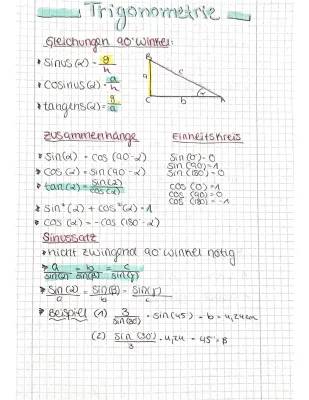 Trigonometrie
Gleichungen 90° Winkel:
• sinus(α) = g/h
• cosinus(α) = a/h
• tangens(α) = g/a
B
a
c
C
b
α
A
Zusammenhänge
• sin(α) = cos(90-α)
• cos(α) = sin(90-α)
• tan(α) = sin(α)/cos(α)
• sin²(α) + cos²(α) = 1
• cos(α) = -cos(180-α)
Einheitskreis
sin(0) = 0
sin(90) = 1
sin(180) = 0
cos(0) = 1
cos(90) = 0
cos(180) = -1
Sinussatz
• nicht zwingend 90° winkel nötig
• a/sin(α) = b/sin(β) = c/sin(γ)
• sin(α)/a = sin(β)/b = sin(γ)/c
• Beispiel (1) 3/sin(30) · sin(45) = b = 4,24cm
(2) sin(30)/3 · 4,24 = 45° = β